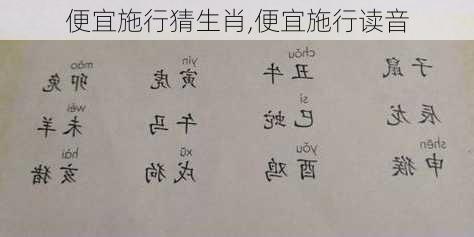 便宜施行猜生肖,便宜施行读音
chǒu yín mǎo
子鼠 丑牛 寅虎 卯兔
sì wèi
辰龙 巳蛇 午马 未羊
shēn yǒu xū hài
申猴 酉鸡 戌狗 亥猪